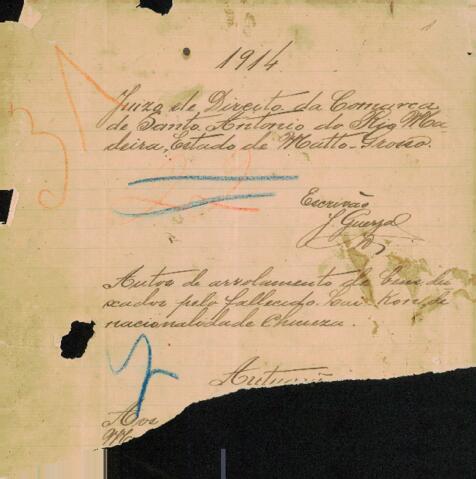 1
1914
Juizo de Direito da Comarca
de Santo Antonio do Rio Ma
deira, Estado de Matto-Grosso.
31
Escrivão
J. Guerra
Autos de arrolamento de bens dei
xados pelo fallecido Kon, de
nacionalidade Chineza.
Aos